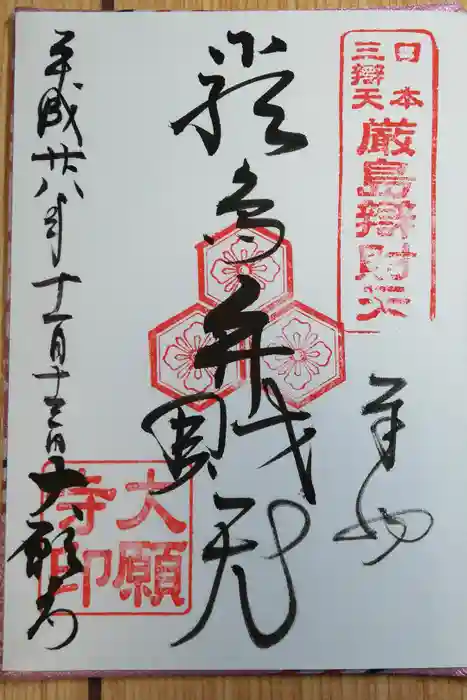 日本
三辯天
厳島辯財天
奉拝
厳島弁財天
平成廿八年十一月十三日 大願寺
大願
寺印